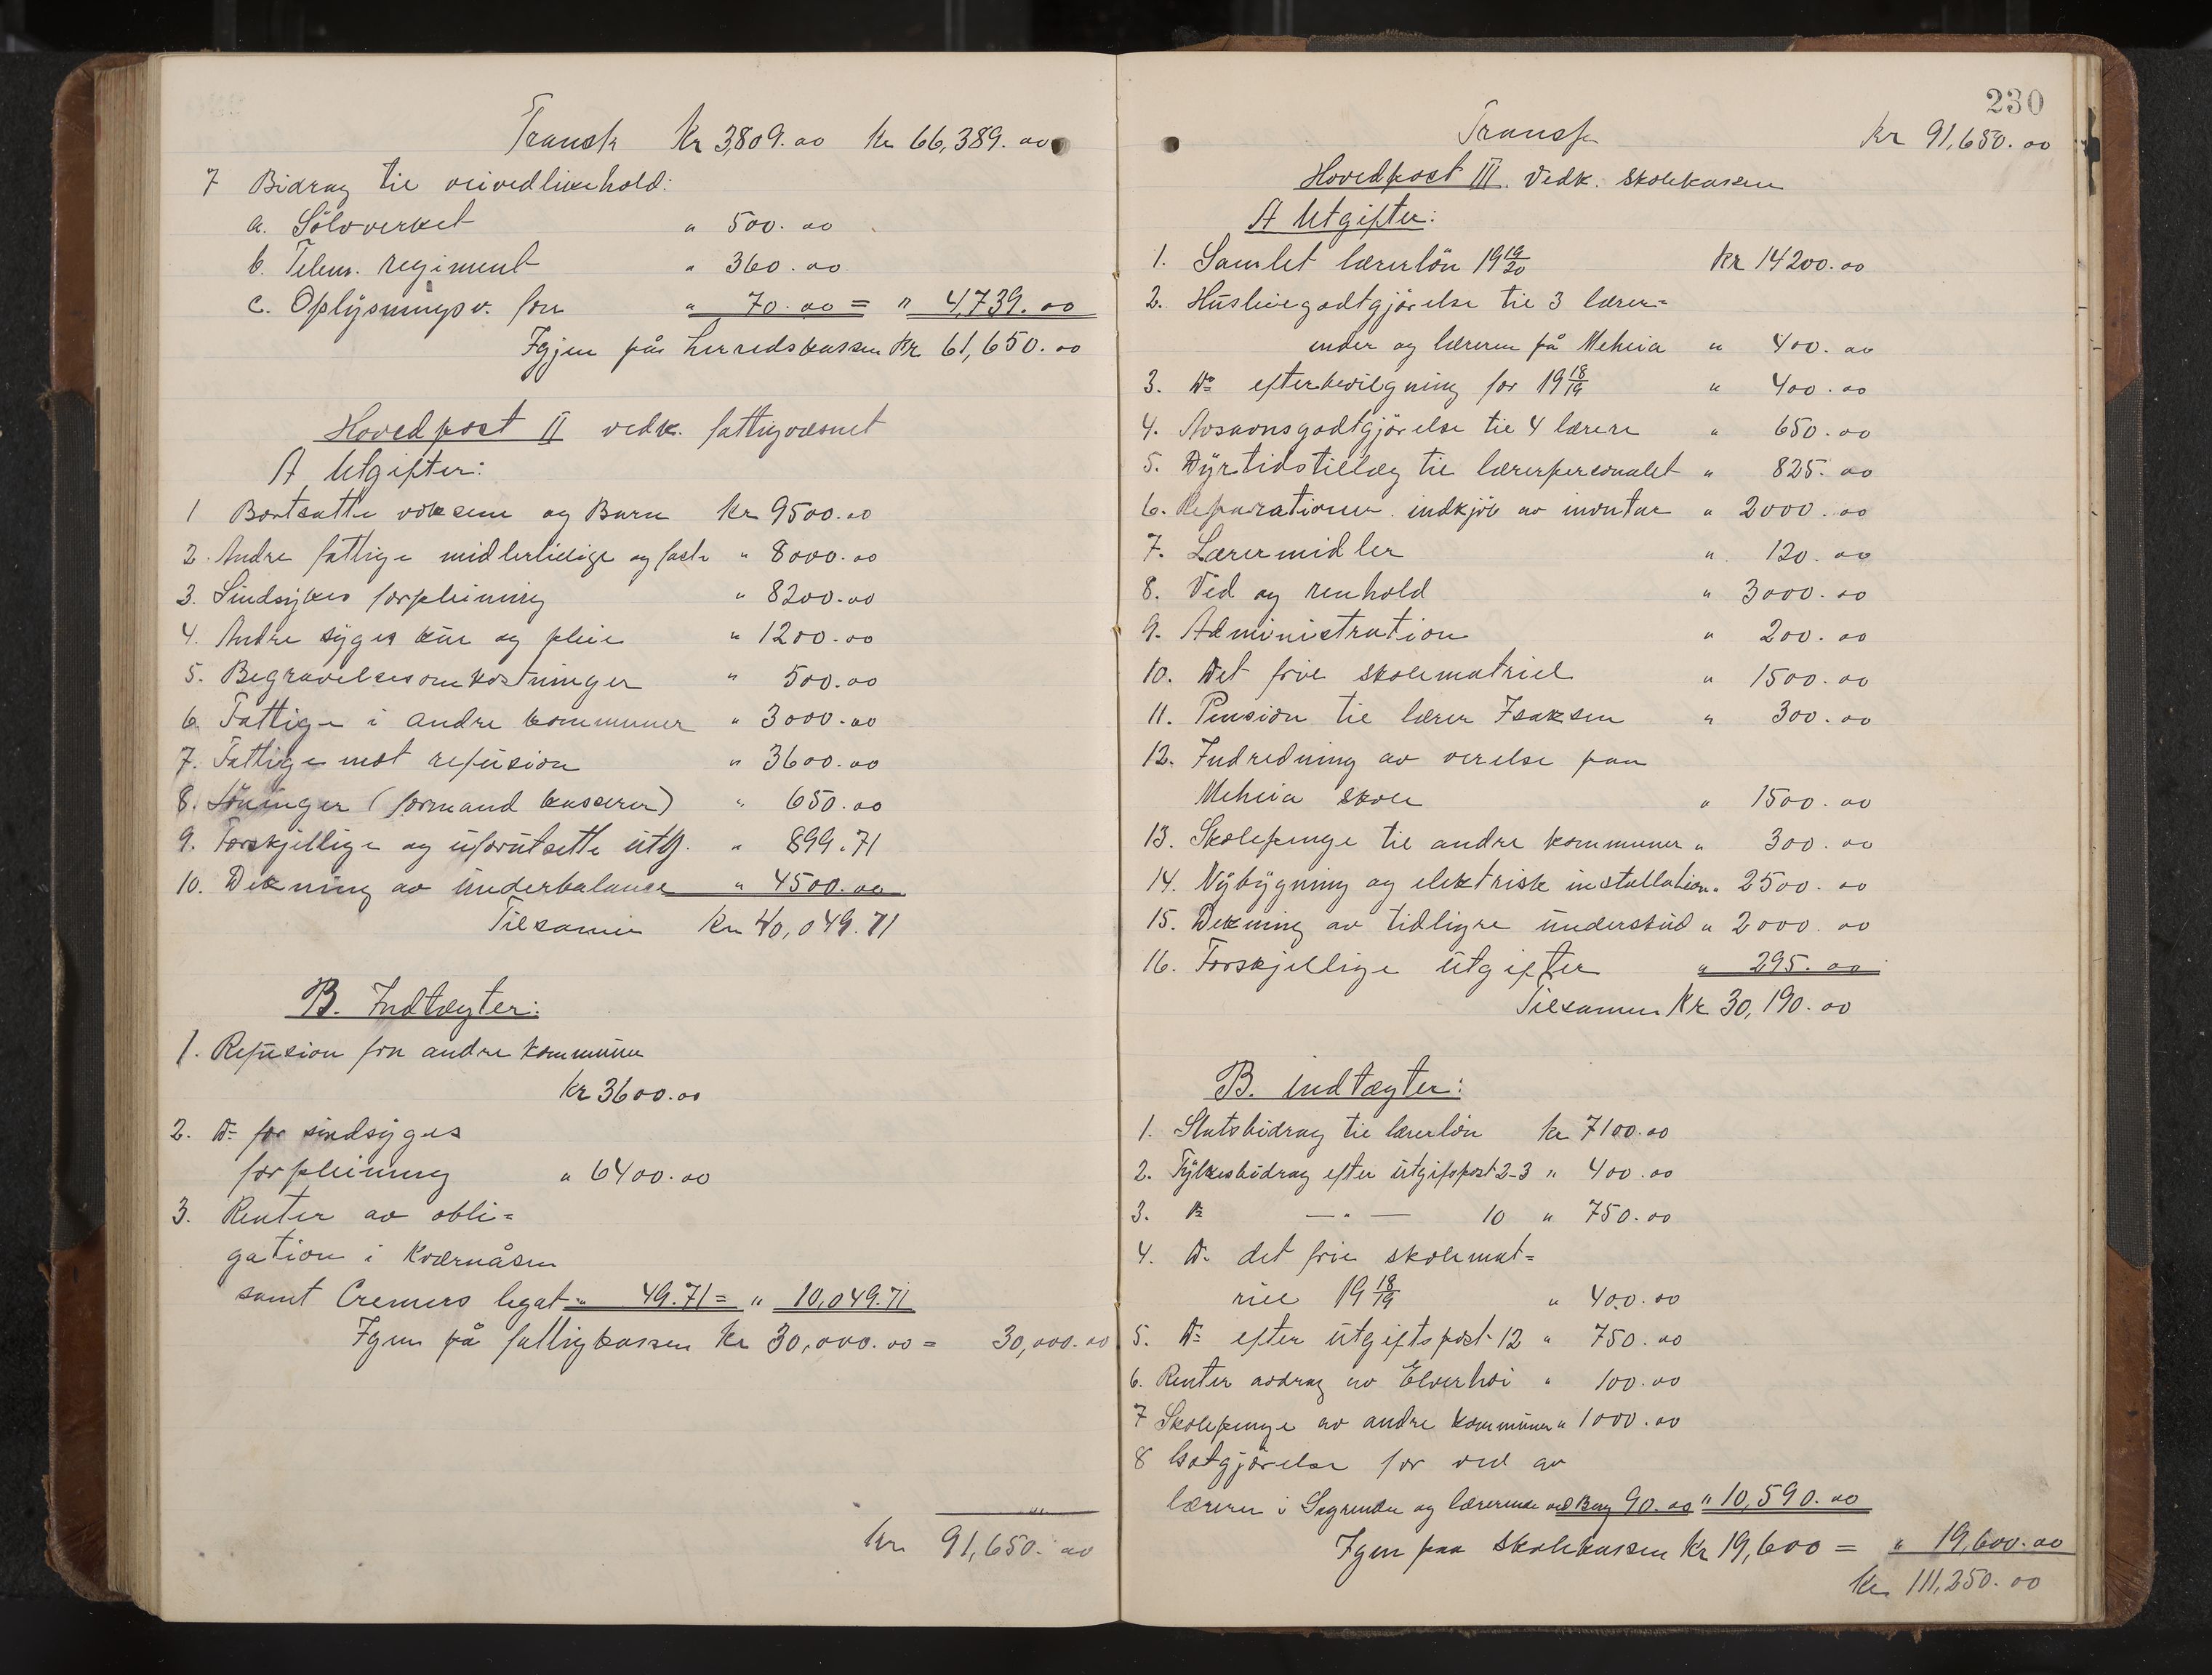 Transp. Kr 3,809.00 Kr 66,389.00
7 Bidrag til veivedlikehold:
a. Sölvverket " 500.00
b. Telem. regiment " 360.00
c. Oplysningsv. fon " 70.00 = " 4,739.00
Igjen på herredskassen Kr 61,650.00
Hovedpost II vedk. fattigvæsnet
A Utgifter:
1 Bortsatte voksene og Barn Kr 9500.00
2. Andre fattige midlertidige og faste " 8000.00
3. Sindsykes forpleining " 8200.00
4. Andre syges kur og pleie " 1200.00
5. Begravelsesomkostninger " 500.00
6. Fattige i andre kommuner " 3000.00
7. Fattige mot refusion " 3600.00
8. Löninger (formand kasserer) " 650.00
9. Forskjellige og uforutsette utg. " 899.71
10. Dekning av underbalance " 4500.00
Tilsamen Kr 40,049.71
B. Indtægter:
1. Refusion fra andre kommuner
Kr 3600.00
2. Do for sindsyges
forpleining " 6400.00
3. Renter av obli=
gation i Kværnåsen
samt Cremers legat " 49.71 = " 10,049.71
Igen på fattigkassen Kr 30,000.00 = 30,000.00
Kr 91,650.00
230
Transp. Kr 91,650.00
Hovedpost III. Vedk. skolekassen
A Utgifter:
1. Samlet lærerlön 19 19/20 Kr 14200.00
2. Husleiegodtgjörelse til 3 lærer=
inder og læreren på Meheia " 400.00
3. Do efterbevilgning for 19 18/19 " 400.00
4. Avsavnsgodtgjörelse til 4 lærere " 650.00
5. Dyrtidstillæg til lærerpersonalet " 825.00
6. Reparationer. indkjöb av inventar " 2000.00
7. Lærermidler " 120.00
8. Ved og renhold " 3000.00
9. Administration " 200.00
10. Det frie skolematriel " 1500.00
11. Pension til lærer Isaksen " 300.00
12. Indredning av verelse paa
Meheia skole " 1500.00
13. Skolepenge til andre kommuner " 300.00
14. Nybygning og elektrisk installation " 2500.00
15. Dekning av tidligre underskud " 2000.00
16. Forskjellige utgifter " 295.00
Tilsamen Kr 30,190.00
B. indtægter:
1. Statsbidrag til lærerlön kr 7100.00
2. Fylkesbidrag efter utgifspost 2-3 " 400.00
3. Do — " — 10 " 750.00
4. Do det frie skolemat=
riel 19 18/19 " 400.00
5. Do efter utgiftspost 12 " 750.00
6. Renter avdrag av Elverhöi " 100.00
7 Skolepenge av andre kommuner " 1000.00
8 Gotgjörelse for ved av
læreren i Sagrenda og lærerinde ved Berg 90.00 " 10,590.00
Igen paa skolekassen Kr 19,600 = " 19,600.00
Kr 111,250.00